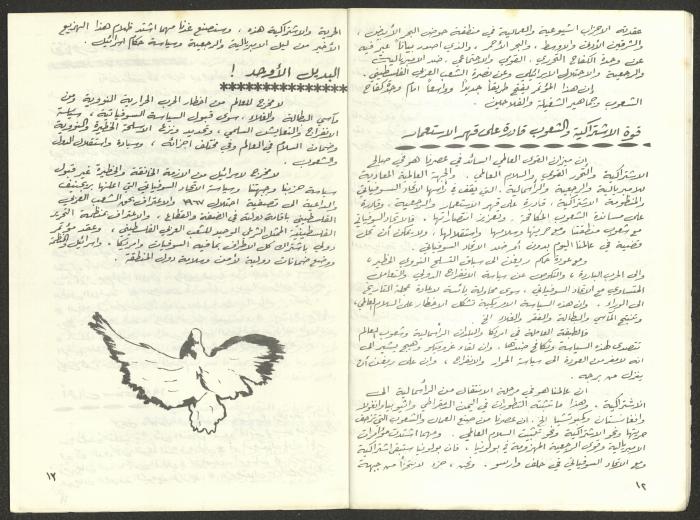 عقدته الاحزاب الشيوعية والعمالية في منطقة حوض البحر الأبيض،
والشرقين الأدنى والاوسط، والبحر الأحمر، والذي اصدر بياناً عبر فيه
عن وحدة الكفاح التحرري، القومي والاجتماعي، ضد الامبريالية
والرجعية والاحتلال الاسرائيلي وعن نصرة الشعب العربي الفلسطيني.
ان هذا المؤتمر يفتح طريقاً جديداً وواسعاً امام وحدة كفاح
الشعوب وجماهير الشغيلة والفلاحين.
قوة الاشتراكية والشعوب قادرة على قهر الاستعمار
ان ميزان القوى العالمي السائد في عصرنا هو في صالح
الاشتراكية والتحرر القومي والسلام العالمي. والجبهة العالمية المعادية
للامبريالية والرجعية والرأسمالية، التي يقف في رأسها الاتحاد السوفياتي
والمنظومة الاشتراكية، قادرة على قهر الاستعمار والرجعية، وقادرة
على مساندة الشعوب المكافحة، وتعزيز انتصاراتها. فالاتحاد السوفياتي
مع شعوب منطقتنا ومع حريتها وسلامها واستقلالها، ولا يمكن ان تحل
قضية في عالمنا اليوم بدون او ضد الاتحاد السوفياتي.
ومع عودة حكم ريغن الى سباق التسلح النووي الخطير،
والى الحرب الباردة، والنكوص عن سياسة الانفراج الدولي والتعامل
المتساوي مع الاتحاد السوفياتي، سوى محاولة يائسة لاعادة عجلة التاريخ
الى الوراء. وان هذه السياسة الامريكية تشكل الاخطار على السلام العالمي،
وتنتج المآسي والبطالة والفقر والغلاء الخ.
فالطبقة العاملة في امريكا والبلدان الرأسمالية وشعوب العالم
تتصدى لهذه السياسة وتكافح ضدها. وان لقاء غروميكو وهيج يشير الى
انه لا مفر من العودة الى سياسة الحوار والانفراج، وان على ريغن أن
ينزل عن برجه.
ان عالمنا هو في مرحلة الانتقال من الرأسمالية الى
الاشتراكية. وهذا ما تثبته التطورات في اليمن الديمقراطي واثيوبيا وانغولا
وافغانستان وكمبوتشيا الخ. ان عصرنا من صنع العمال والشعوب التي تزحف
حريتها ونحو الاشتراكية ونحو تثبيت السلام العالمي. ومهما اشتدت مؤامرات
الامبريالية وقوى الرجعية المهزومة في بولونيا، فان بولونيا ستبقى اشتراكية
ومع الاتحاد السوفياتي في حلف وارسو. ونحن، جزء لا يتجزأ من جبهة
١٢
الحرية والاشتراكية هذه، وسنصنع غدنا مهما اشتد ظلام هذا الهزيع
الأخير من ليل الامبريالية والرجعية وسياسة حكام اسرائيل.
البديل الأوحد!
لا مخرج للعالم من اخطار الحرب الحرارية النووية ومن
مآسي البطالة والغلاء، سوى قبول السياسة السوفياتية، سياسة
الانفراج والتعايش السلمي، وتحديد ونزع الاسلحة الخطيرة والنووية
وضمان السلام في العالم وفي مختلف اجزائه، وسيادة واستقلال الدول
والشعوب.
لا مخرج لاسرائيل من الازمة الخانقة والخطيرة غير قبول
سياسة حزبنا وجبهتنا وسياسة الاتحاد السوفياتي التي اعلنها بريجنيف
والداعية الى تصفية احتلال ١٩٦٧ والاعتراف بحق الشعب العربي
الفلسطيني باقامة دولته في الضفة والقطاع، والاعتراف بمنظمة التحرير
الفلسطينية الممثل الشرعي الوحيد للشعب العربي الفلسطيني، وعقد مؤتمر
دولي باشتراك كل الاطراف بما فيه السوفيات وامريكا، واسرائيل والمنظمة
ووضع ضمانات دولية لأمن وسلامة دول المنطقة.
١٣